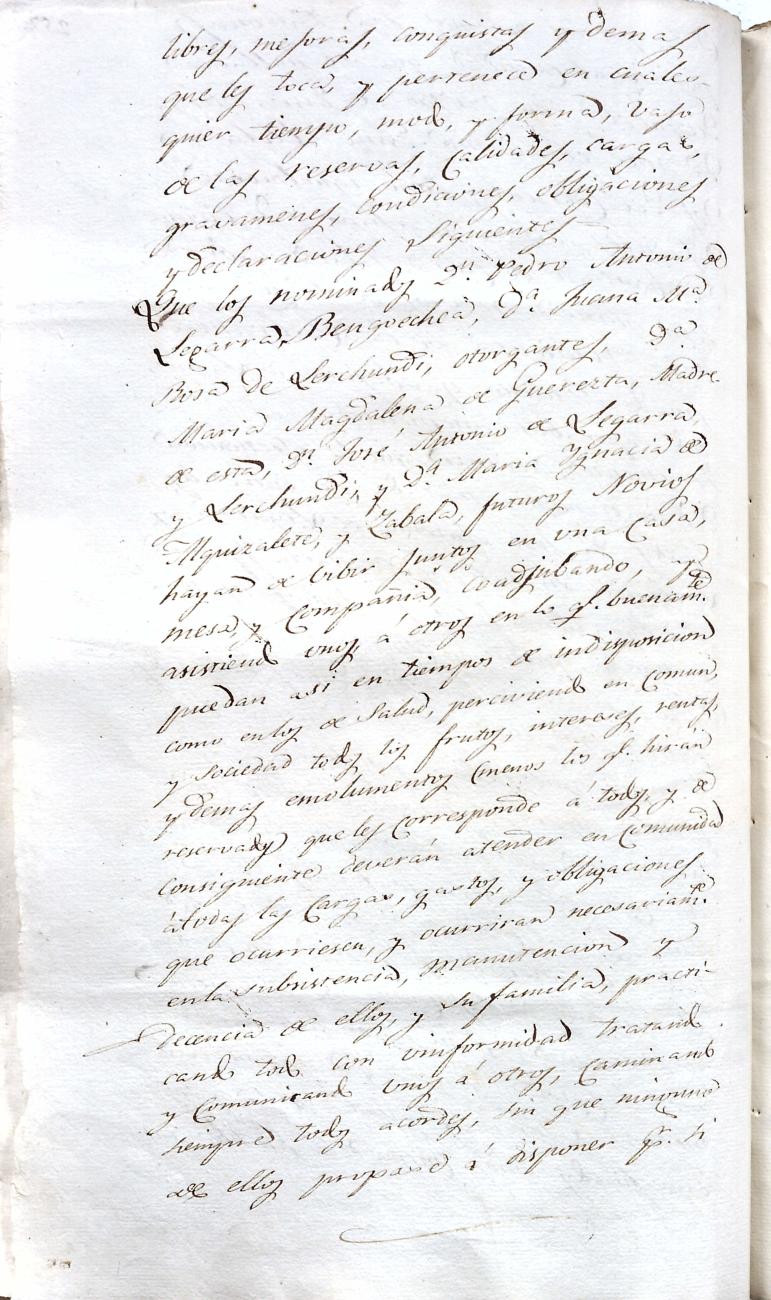 libres, mejoras, conquistas y demas
que les toca, y pertenece en cuales-
quier tiempo, modo, y forma, vajo
de las reservas, Calidades, cargas,
gravamenes, Condiciones, obligaciones
y declaraciones Siguientes
Que los nominados Dn. Pedro Antonio de
Legarra, Bengoechea, Da. Juana Ma.
Rosa de Lerchundi, otorgantes, Da
Maria Magdalena de Guerezta, Madre
de esta, Dn. José Antonio de Legarra,
y Lerchundi, y Da. Maria Ygnacia de
Alquizalete, y Zabala, futuros Novios
hayan de vibir juntos en una Casa,
mesa, y Compañia, Coadjubando, y
asistiendo unos, á otros en lo qe. buenamte.
puedan asi en tiempos de indisposicion
como en los de Salud, perciviendo en Comun,
y Sociedad todos los frutos, intereses, rentas,
y demas emolumentos (menos los qe. hirán
reservados) que les Corresponde á todos, y de
Consiguiente deverán atender en Comunidad
á todas las Cargas, gastos, y obligaciones
que ocurriesen, y ocurriran necesariamte.
en la subsistencia, manutencion y
decencia de ellos, y su familia, practi-
cando todo con uniformidad tratando
y Comunicando unos á otros, Caminando
siempre todos acordes, sin que ninguno
de ellos propase á disponer pr. si